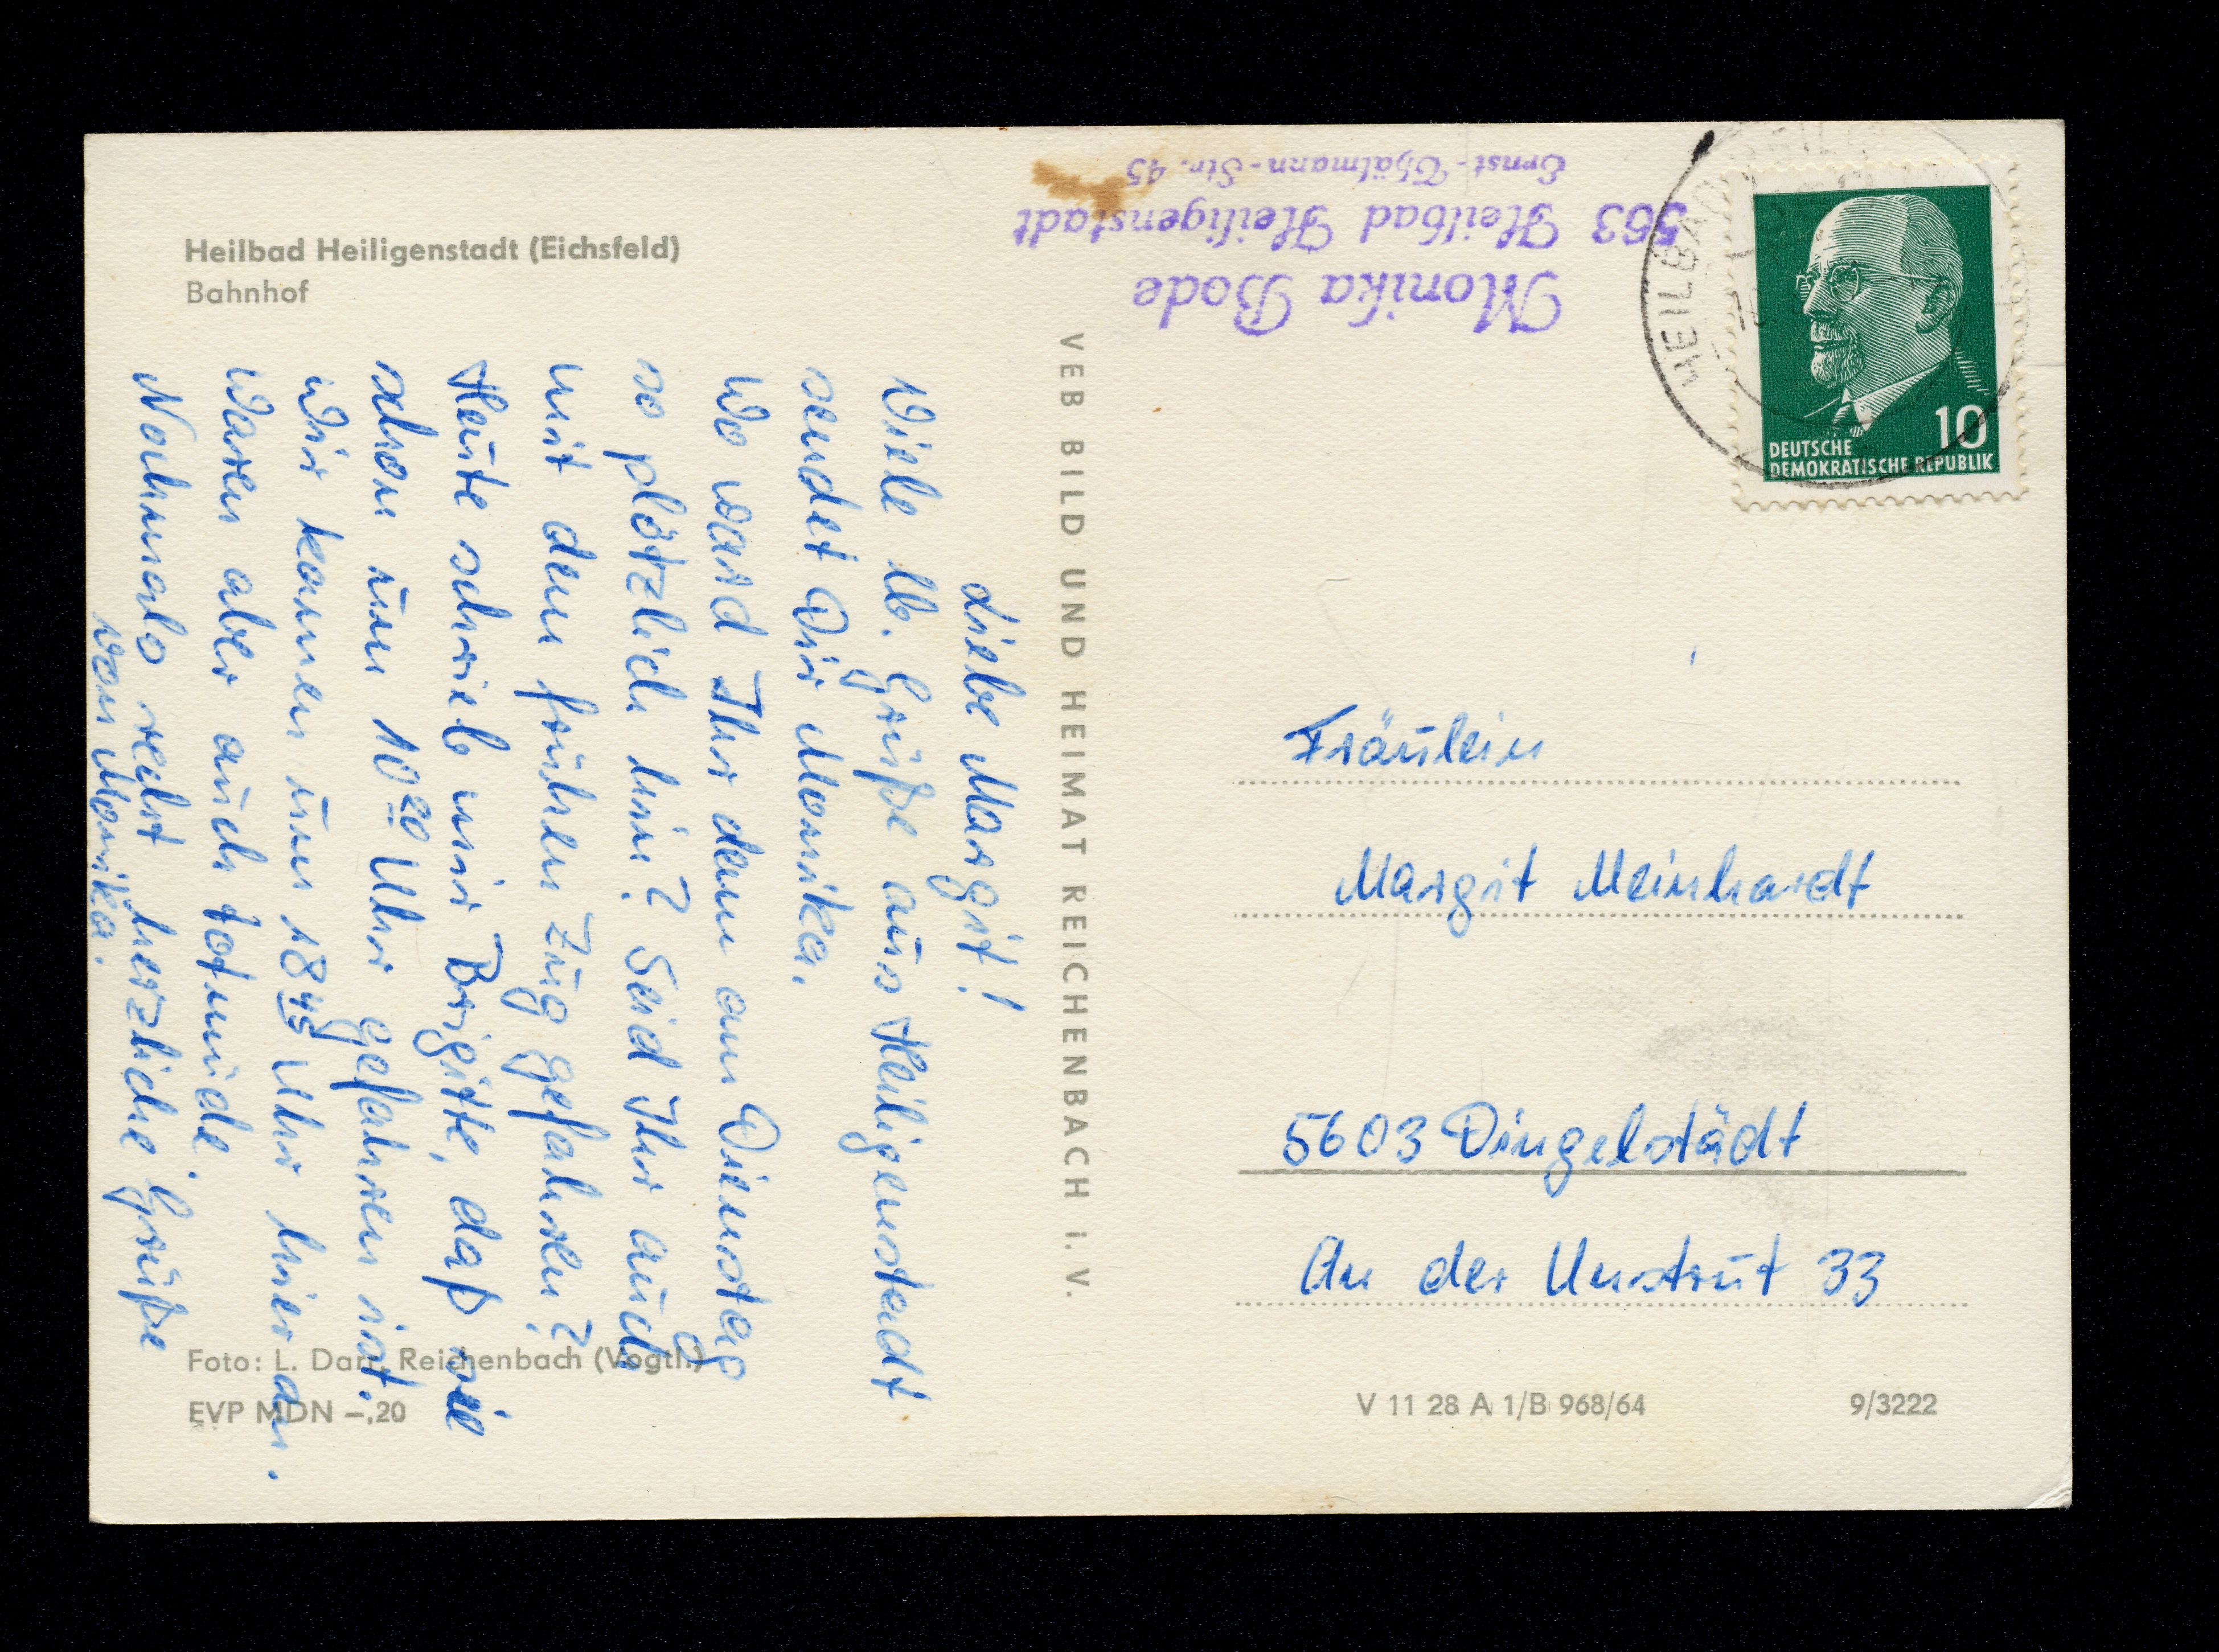 Heilbad Heiligenstadt (Eichsfeld)
Bahnhof
Liebe Margit!
Viele lb. Grüße aus Heiligenstadt
sendet Dir Monika.
Wo ward Ihr denn am Dienstag
so plötzlich hin? Seid Ihr auch
mit dem frühen Zug gefahren?
Heute schrieb mir Brigitte, daß sie
schon um 10²⁰ Uhr gefahren ist.
Wir kamen um 18⁴⁵ Uhr hier an.
Waren aber auch totmüde.
Nochmals recht herzliche Grüße
von Monika.
Foto: L. Darr, Reichenbach (Vogtl.)
EVP MDN –,20
VEB BILD UND HEIMAT REICHENBACH I. V.
Monika Bode
563 Heilbad Heiligenstadt
Ernst-Thälmann-Str. 45
HEILBAD
10
DEUTSCHE
DEMOKRATISCHE REPUBLIK
Fräulein
Margit Meinhardt
5603 Dingelstädt
An der Unstrut 33
V 11 28 A 1/B 968/64
9/3222